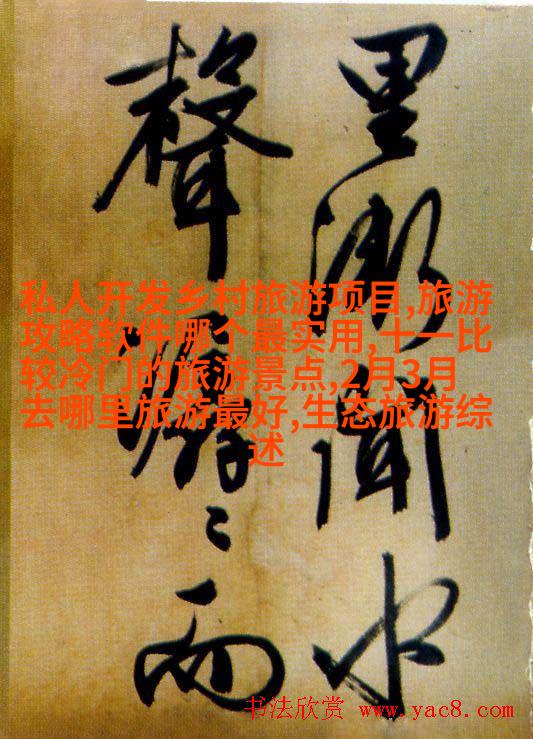 里漸聞水
聲潺〻而
私人开发乡村旅游项目,旅游
攻略软件哪个最实用,十一比
较冷门的旅游景点,2月3月
去哪里旅游最好,生态旅游综
述
书法欣赏 www.yac8.com